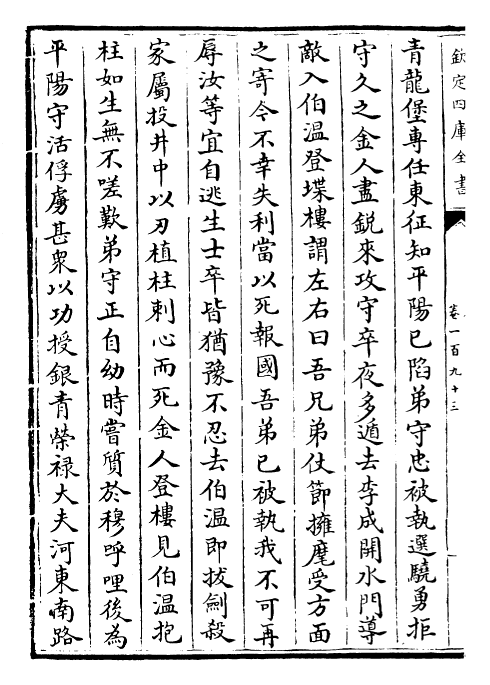 欽定四庫全書
卷一百九十三
青龍堡專任東征知平陽已陷弟守忠被執選驍勇拒
守久之金人盡銳來攻守卒夜多遁去李成開水門導
敵入伯溫登堞樓謂左右曰吾兄弟仗節擁麾受方面
之寄今不幸失利當以死報國吾弟已被執我不可再
辱汝等宜自逃生士卒皆猶豫不忍去伯溫即拔劍殺
家屬投井中以刃植柱刺心而死金人登樓見伯溫抱
柱如生無不嗟歎弟守正自幼時嘗質於穆呼哩後為
平陽守活俘虜甚衆以功授銀青榮禄大夫河東南路